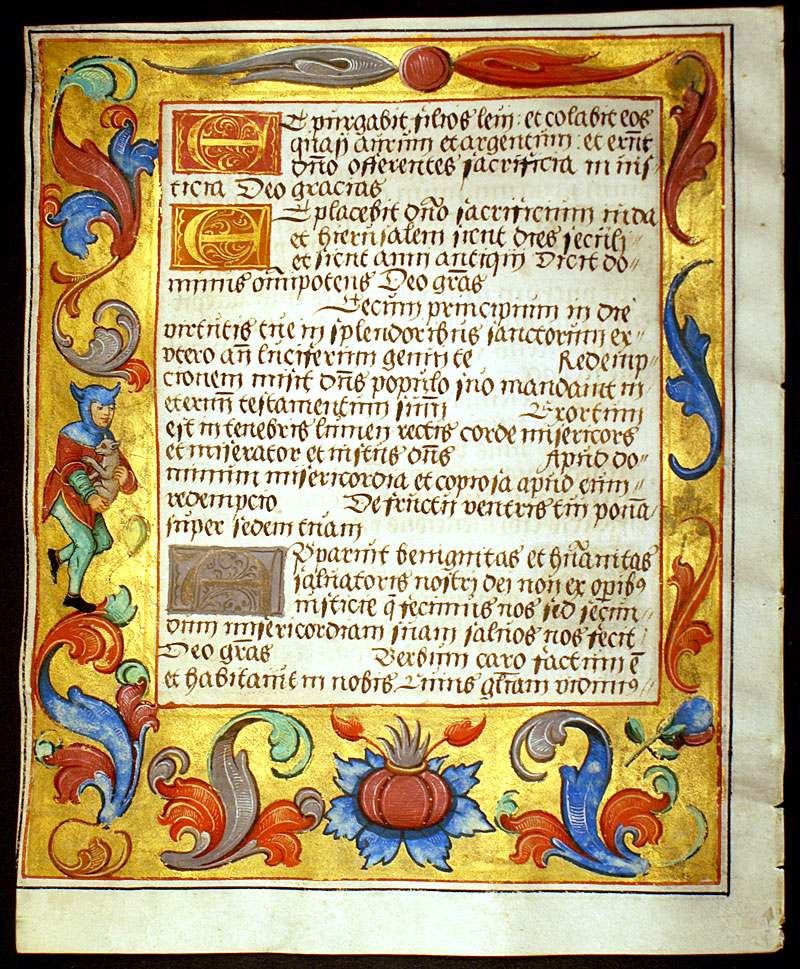 E T purgabit filios leui : et colabit eos
quasi aurum et argentum : et erūt
dño offerentes sacrificia in ius-
ticia Deo gracias
E T placebit dño sacrificium iuda
et hierusalem sicut dies seculi
et sicut anni antiqui Dicit do-
minus oīnpotens Deo grās
Tecum principium in die
virtutis tue in splendoribus sanctorum ex-
vtero añ luciferum genui te Redemp-
cionem misit dñs populo suo mandauit in
eternū testamentum suum Exortum
est in tenebris lumen rectis corde misericors
et miserator et iustus dñs Apud do-
minum misericordia et copiosa apud eum
redempcio De fructu ventris tui ponā
super sedem tuam
A Pparuit benignitas et hūanitas
saluatoris nostri dei non ex opibꝰ
iusticie q̄ fecimus nos sed secun-
dum misericordiam suam saluos nos fecit
Deo grās Verbum caro factum ē
et habitauit in nobis Cuius gl̄iam vidimꝰ